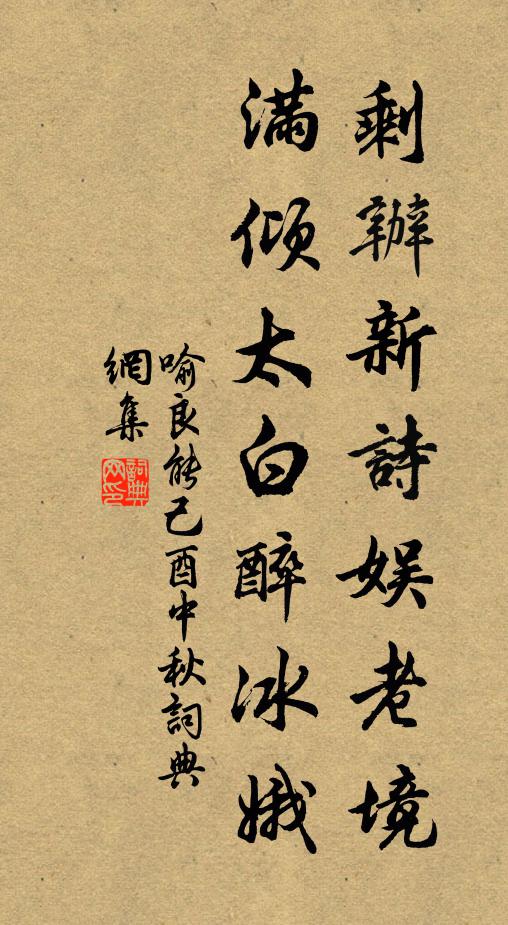 剩辦新詩娛老境
滿傾太白醉冰娥
喻良能己酉中秋詞典
網集
詞典網印